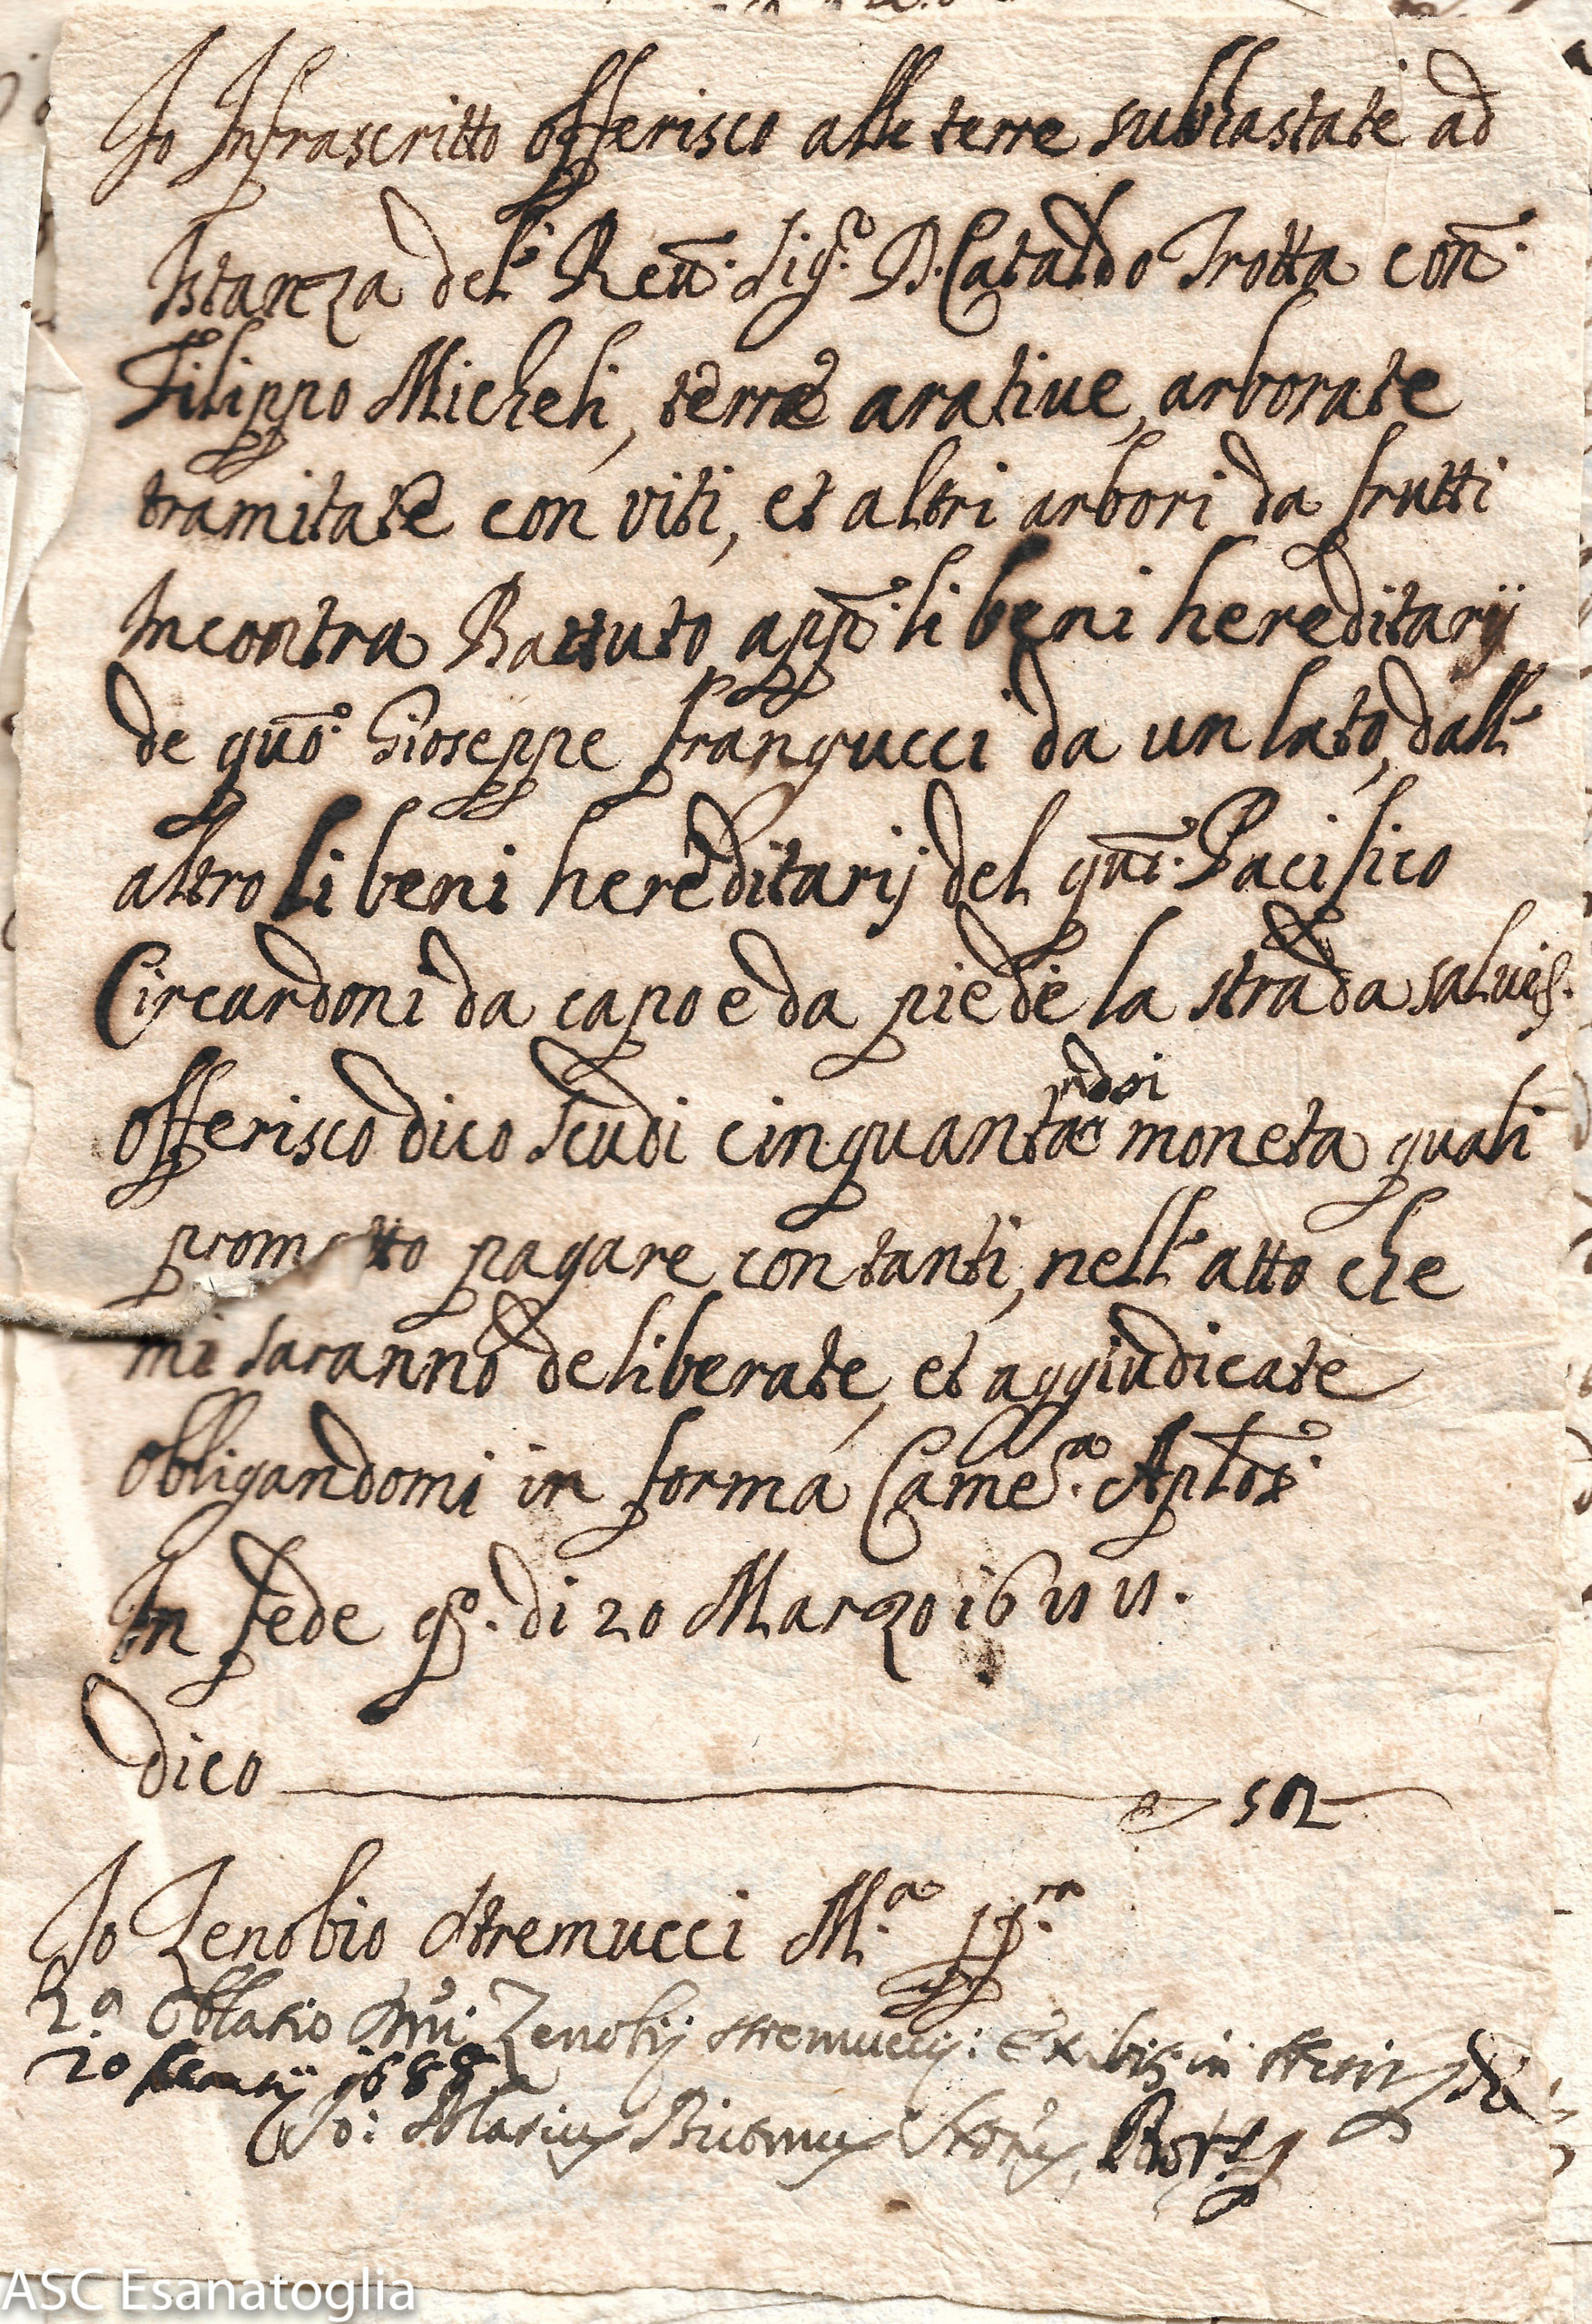 Io Infrascritto offerisco alle terre subhastate ad
Istanza del Reū: Sig.re D. Cataldo Trotta con̄:
Filippo Micheli, terre aratiue, arborate
tramitate con viti, et altri arbori da frutti
In contra Battuto app̄: li beni hereditarij
de quō: Gioseppe frangucci da un lato, dall'
altro li beni hereditarij del qm̄: Pacifico
Circardoni da capo e da piede la strada saluis.
offerisco dico scudi cinquantadoi moneta quali
prometto pagare contanti, nell' atto che
mi saranno deliberate, et aggiudicate
obligandomi in forma Came.a Aplõs:
In fede qo. di 20 Marzo 16
dico 52
Io Zenobio Stremucci M.a pp.ra
2.a Oblatio Zenobij Stremucij: Exibis in
20 1688
Io:
ASC Esanatoglia